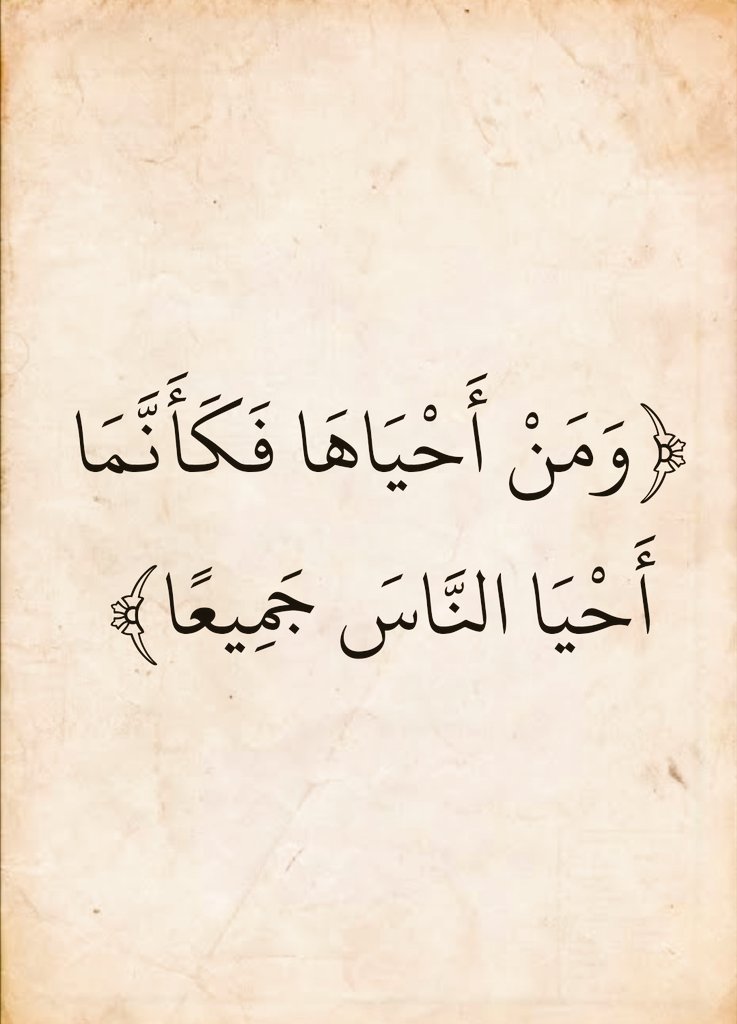 ﴿وَمَنْ أَحْيَاهَا فَكَأَنَّمَا
أَحْيَا النَّاسَ جَمِيعًا﴾